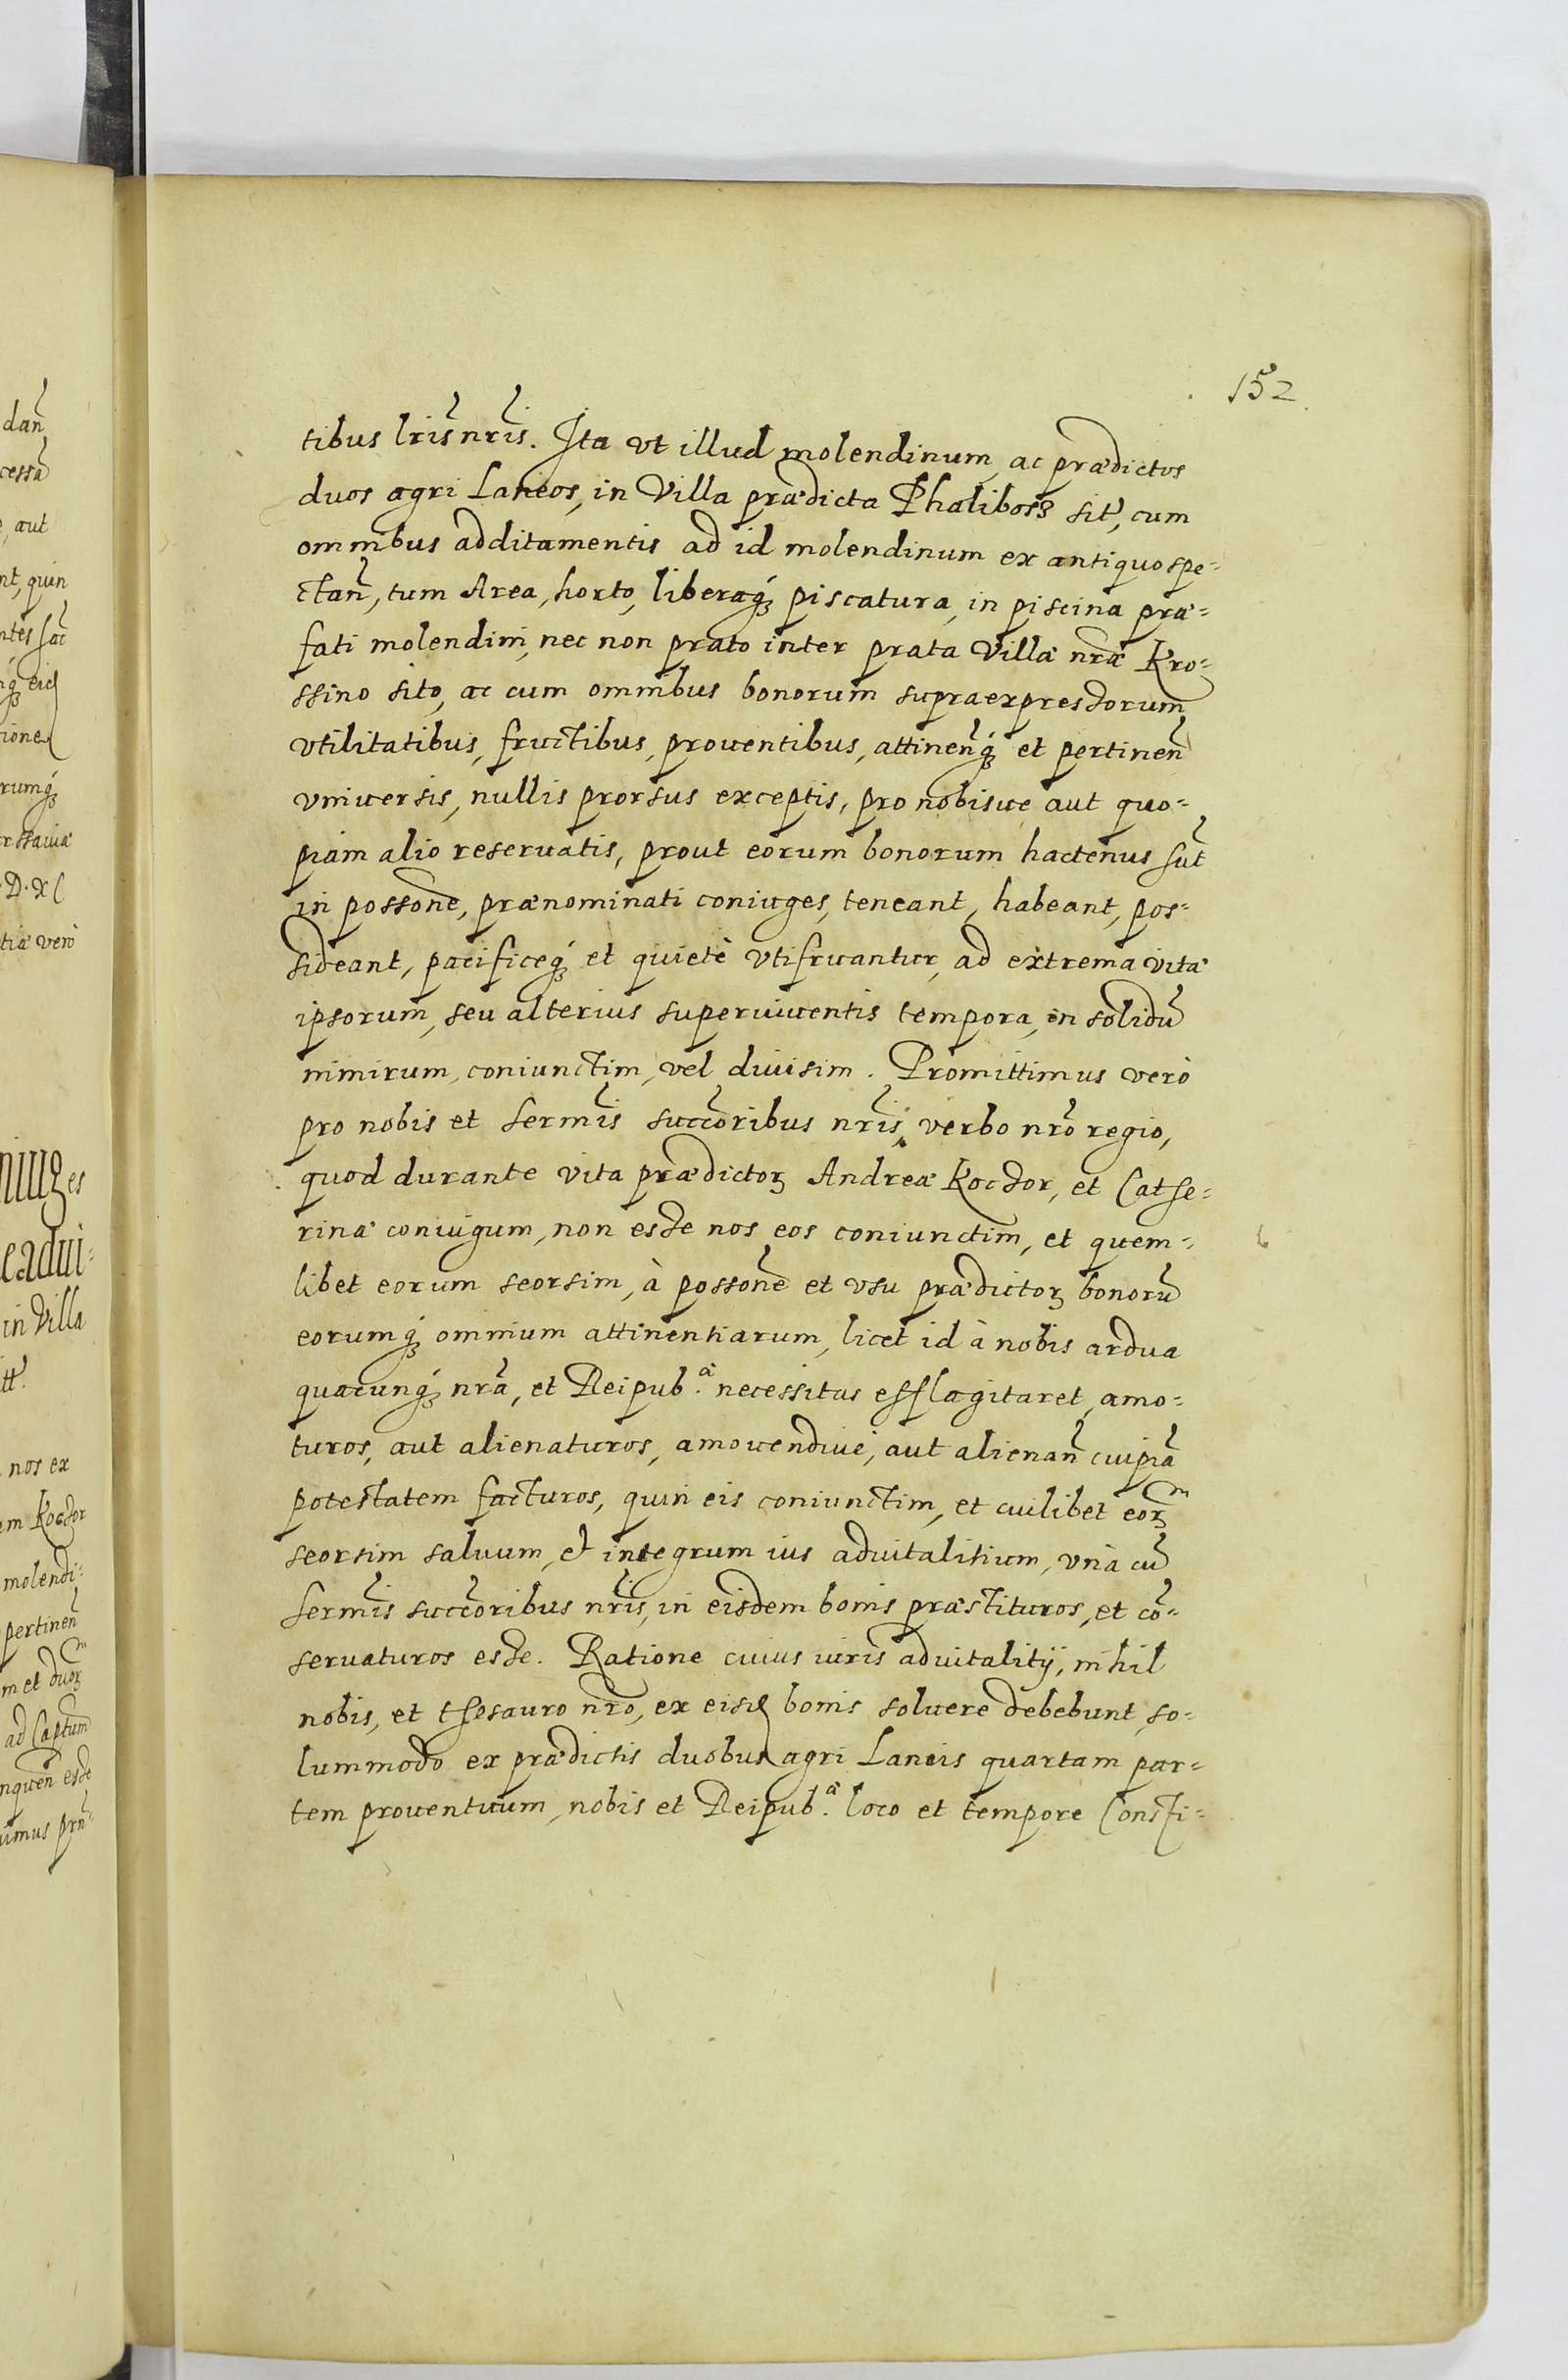 152
tibus lris nris. Ita vt illud molendinum, ac prædictos
duos agri Laneos, in Villa prædicta Phalibosz sit, cum
omnibus additamentis ad id molendinum ex antiquo spe-
ctan̄, tum Area, horto, liberaq́ꝫ piscatura, in piscina præ-
fati molendini, nec non prato inter prata Villæ nræ Kro-
ssino sito, ac cum omnibus bonorum supraexpressorum
vtilitatibus, fructibus, prouentibus, attinen̄q́ꝫ et pertinen̄
vniuersis, nullis prorsus exceptis, pro nobisue aut quo-
piam alio reseruatis, prout eorum bonorum hactenus sūt
in possone, prænominati coniuges, teneant, habeant, pos-
sideant, pacificeq́ꝫ et quietè vtifruantur, ad extrema vitæ
ipsorum, seu alterius superuiuentis tempora, in solidū
nimirum, coniunctim, vel diuisim. Promittimus verò
pro nobis et Sermis succoribus nris, verbo nro regio,
quod durante vita prædictoꝝ Andreæ Kocdor, et Cathe-
rinæ coniugum, non esse nos eos coniunctim, et quem-
libet eorum seorsim, à possone et vsu prædictoꝝ bonorū
eorumq́ꝫ omnium attinentiarum, licet id à nobis ardua
quacunq́ꝫ nra, et Reipub.ᵃᵉ necessitas efflagitaret, amo-
turos, aut alienaturos, amouendiue, aut alienan̄ cuipiā
potestatem facturos, quin eis coniunctim, et cuilibet eoꝝm
seorsim saluum, et integrum ius aduitalitium, vnà cū
Sermis succoribus nris, in eisdem bonis præstituros, et cō-
seruaturos esse. Ratione cuius iuris aduitalitij, nihil
nobis, et thesauro nro, ex eisd bonis soluere debebunt, so-
lummodo ex prædictis duobus agri Laneis quartam par-
tem prouentuum, nobis et Reipub.ᵃᵉ loco et tempore Consti-